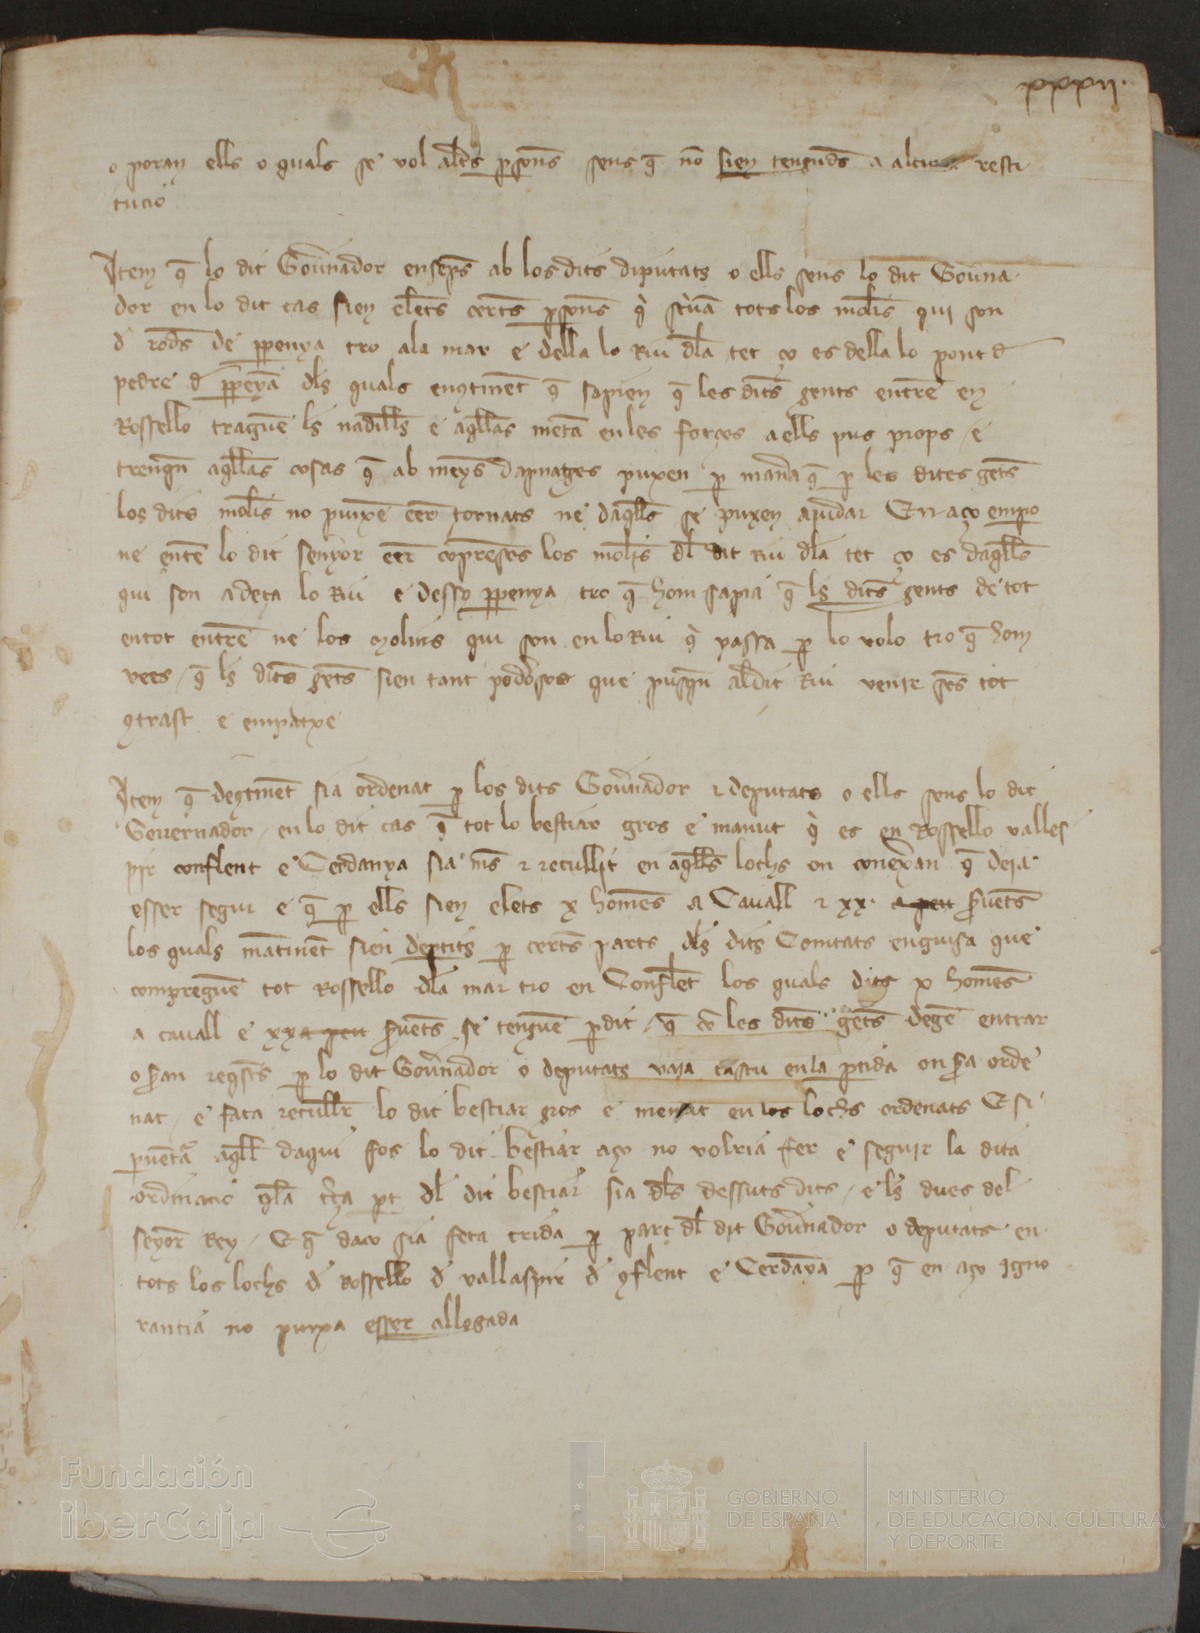 xxxii.
o poran ells o quals se vol altẽs ꝑsoñs sens q̃ no sien tenguds a alcuna resti
tucio
Item q̃ lo dit Gov̾nador ensẽps ab los dits diputats o ells sens lo dit Gov̾na
dor en lo dit cas sien elets certs ꝑsoñs q̾ tots los molĩs qui son
d̾ de ꝑpenya tro ala mar e della lo Riu dl̃a tet ço es della lo pont d̾
pedre d̾ ꝑpeyã dl̃s quals q̃ sapien q̃ les dits̃ gents entrẽ en
Rossello traguẽ ls̃ e aq̃lls̃ metã en les forçes a ells pus props e
aq̃lls̃ cosas q̃ ab meyns dapnatges puxen ꝑ maña q̃ ꝑ les dites gets̃
los dits molĩs no puixẽ eẽr tornats ne daq̃lls̃ se puxen ajudar En aço empo
ne entẽ lo dit senyor eẽr cõpresos los molĩs dl̃ dit Riu dl̃a tet ço es daq̃lls̃
qui son adeça lo Riu e dessus ꝑpenya tro q̃ hom sapia q̃ ls̃ dits̃ gents de tot
entot entrẽ ne los molins qui son en lo Riu q̾ passa ꝑ lo volo tro q̃ hom
vees q̃ ls̃ dits̃ gẽts sien tant poderoses que pusq̃n al dit Riu venir sẽs tot
ꝯtrast e empatxe
Item q̃ sia ordenat ꝑ los dits Gov̾nador ⁊ deputats o ells sens lo dit
Governador en lo dit cas q̃ tot lo bestiar gros e manut q̾ es en Rossello valles
pir conflent e Cerdanya sia ⁊ recullit en aq̃lls̃ lochs on conexan q̃ deia
esser segur e q̃ ꝑ ells sien elets x homẽs a Cavall ⁊ xx. a peu s̾vents̃
los quals mãtinẽt sien ꝑ certs̃ parts dl̃s dits Comtats enguisa que
compreguẽ tot Rossello dl̃a mar tro en Conflẽt los quals dits x homẽs
a cavall e xx a peu s̾vents̃ se tenguẽ ꝑ dit q̃ les dits̃ gẽts degẽ entrar
o s̾an reqsts̃ ꝑ lo dit Gov̾nador o deputats vaja cascu en la ꝑtida on s̾a orde
nat e faça recullir lo dit bestiar gros e menut en los lochs ordenats E si
aq̃ll daqui fos lo dit bestiar aço no volria fer e seguir la dita
ordinacio t̾ça ꝑt dl̃ dit bestiar sia dl̃s dessuts dits e ls̃ dues del
seyor̃ Rey E q̃ daço sia feta crida ꝑ part dl̃ dit Gov̾nador o deputats en
tots los lochs d̾ Rossello d̾ vallaspir d̾ ꝯflent e Cerdãya ꝑ q̃ en aço igno
rancia no puxa esser allegada
Fundación
iberCaja
GOBIERNO
DE ESPAÑA
MINISTERIO
DE EDUCACIÓN, CULTURA
Y DEPORTE